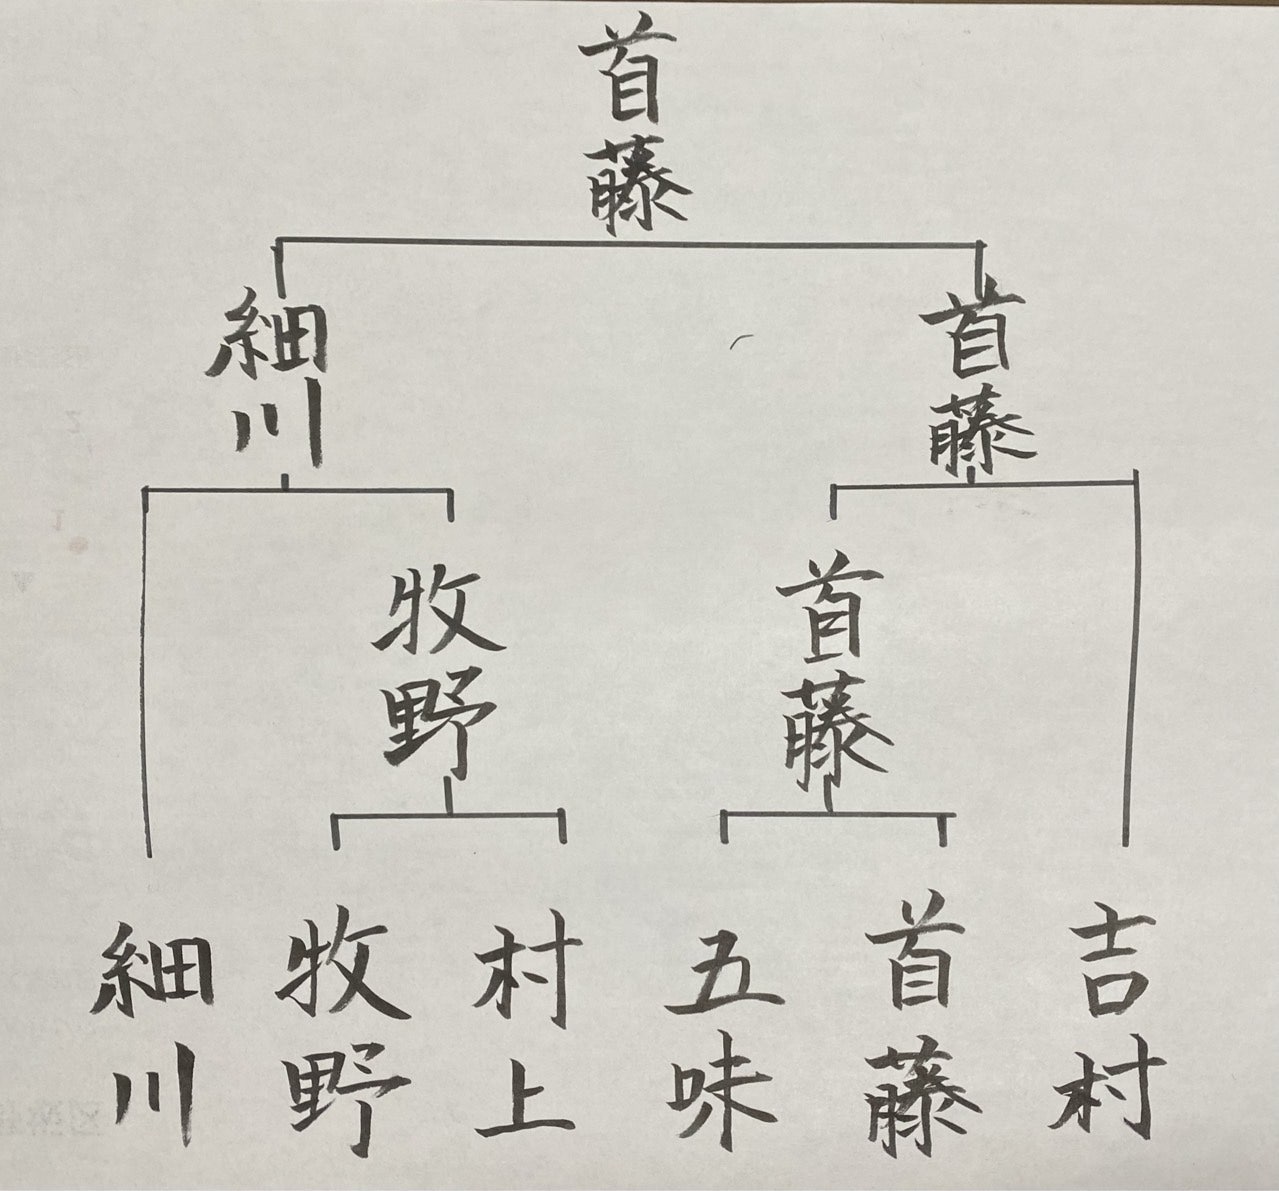 首藤
細川
首藤
牧野
首藤
細川
牧野
村上
五味
首藤
吉村